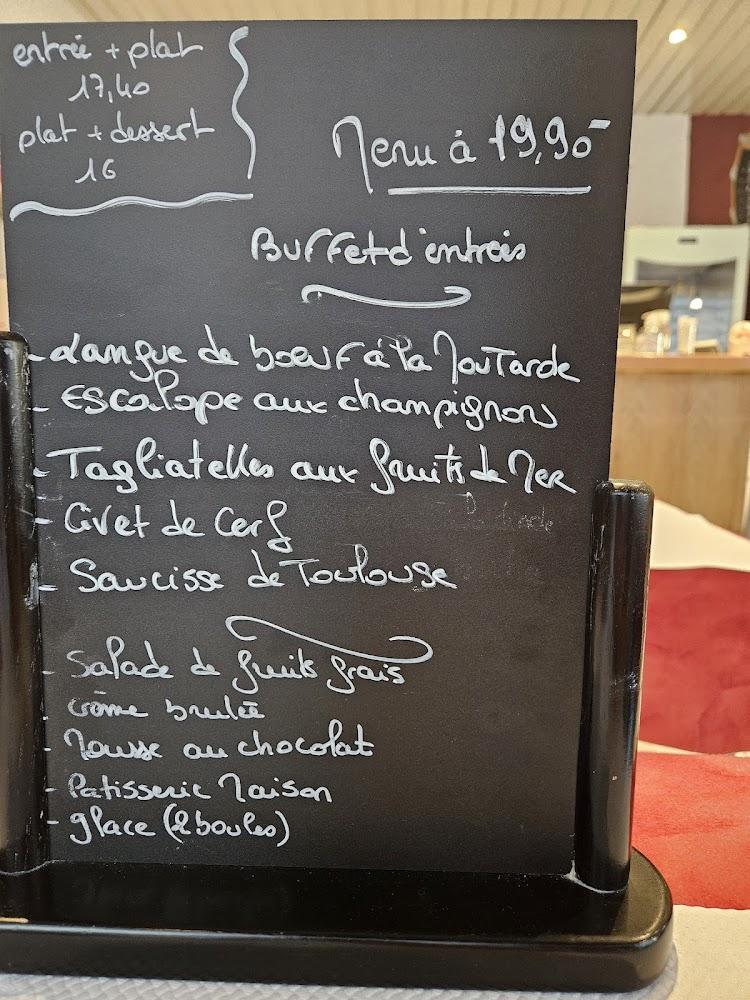 entrée + plat
17,40
plat + dessert
16
Menu à 19,90
Buffet d'entrées
- Langue de boeuf à la Moutarde
- Escalope aux champignons
- Tagliatelles aux fruits de Mer
- Civet de Cerf
- Saucisse de Toulouse
- Salade de fruits frais
- crème brulée
- Mousse au chocolat
- Patisserie Maison
- glace (2 boules)